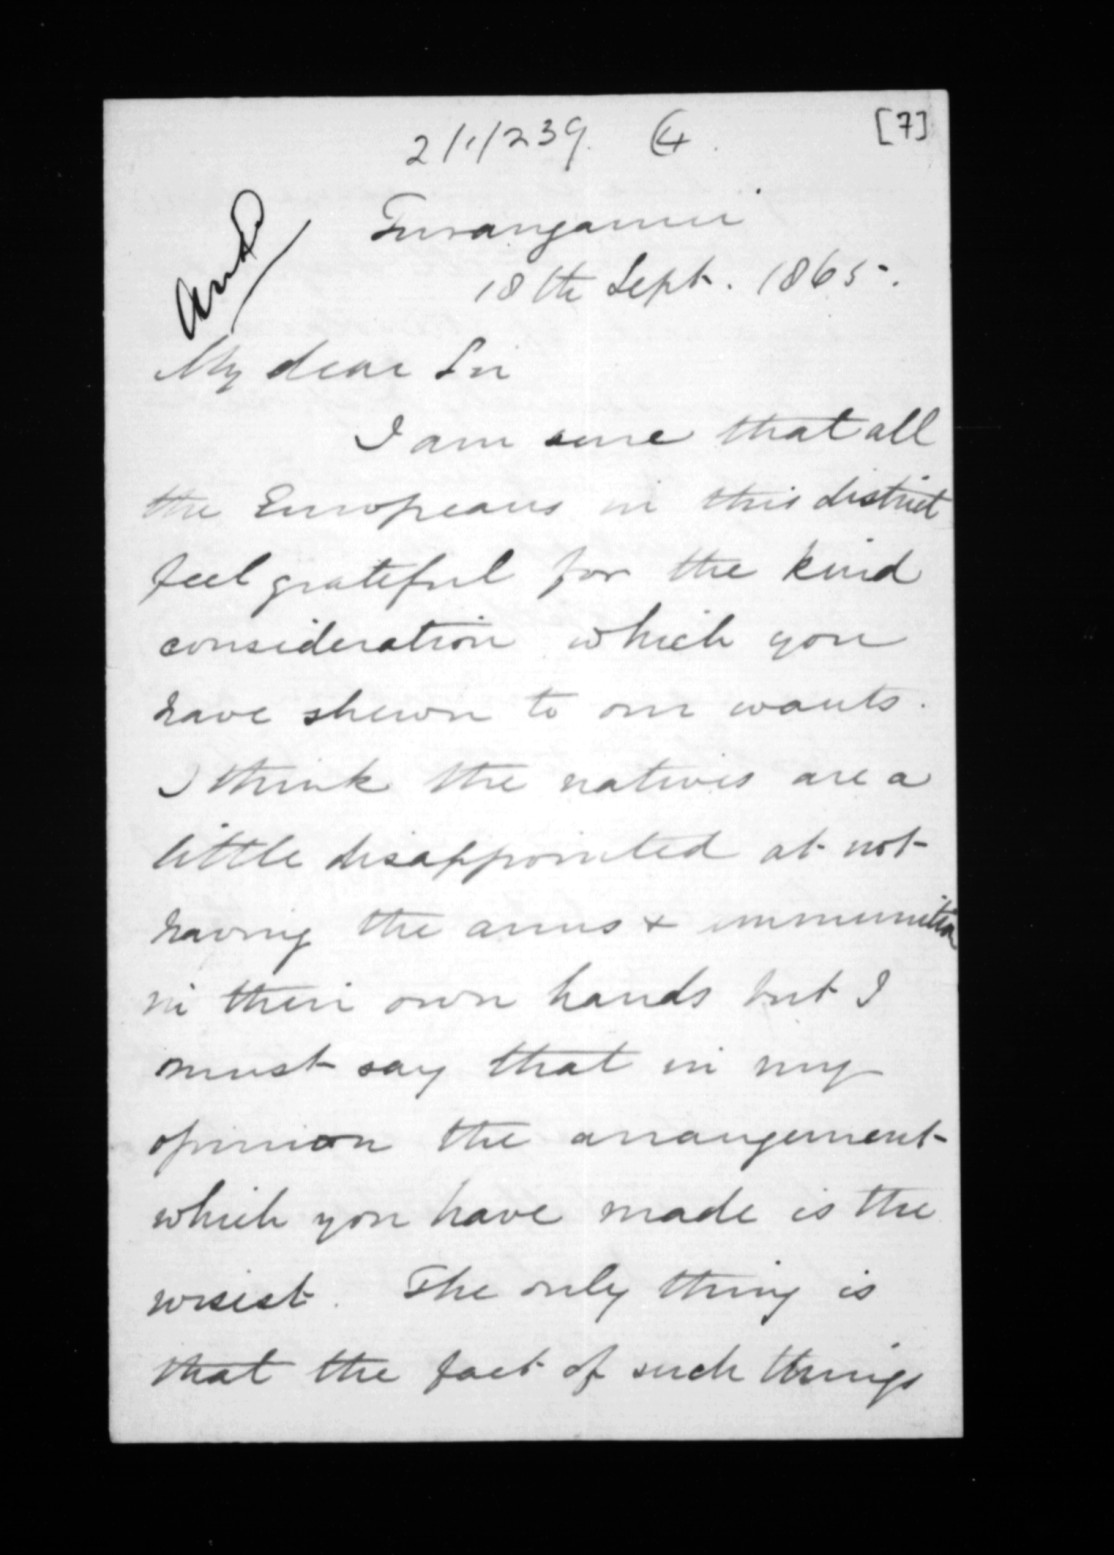 [7]
2/1/239. (4.
Turanganui
18th Sept. 1865.
My dear Sir
I am sure that all
the Europeans in this district
feel grateful for the kind
consideration which you
have shewn to our wants.
I think the natives are a
little disappointed at not
having the arms & ammunition
in their own hands but I
must say that in my
opinion the arrangement
which you have made is the
wisest. The only thing is
that the fact of such things